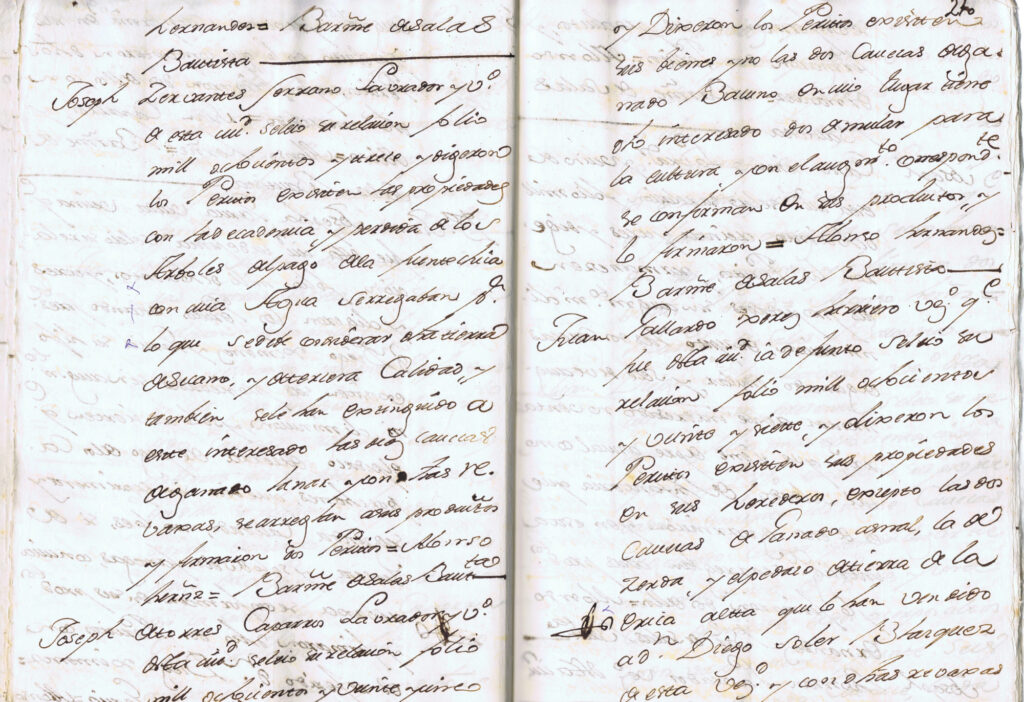 hernandez = Barñe de Salas
Bautista
Joseph Zervantes Serrano Lavrador y v.º
de esta ciu.d se leio su relazion folio
mill ochocientos y siete y digeron
los Peritos existen las propiedades
con la decadencia y perdida de los
Arboles del pago de la fuentechica
con cuia Agua se rregaban p.r
lo que se deve considerar esta tierra
de secano, y de tercera Calidad, y
tambien se le han extinguido a
este interesado las diez cavezas
de ganado lanar y con d.has re
vaxas, se arreglan a sus productos
y firmaron d.hos Peritos = Alonso
herñz = Barñe de Salas Baut.ta
Joseph de torres Cacarrus Lavrador y v.º
de esta ciu.d se leio su relazion folio
mill ochocientos y veinte y cinco
210
y Dixeron los Peritos existen
sus bienes y no las dos Cavezas de ga-
nado Bacuno en cuio lugar tiene
d.ho interesado dos de mular para
la cultura y con el augm.to correspond.te
se confirman en sus productos, y
lo firmaron = Alonso hernandez =
Barñe de Salas Bautista
Juan Gallardo Perez herrero vez.º q.e
fue de esta ciu.d ia defunto se leio su
relazion folio mill ochocientos
y veinte y siette, y dixeron los
Peritos existen sus propiedades
en sus herederos, excepto las dos
cavezas de Ganado asnal, la de
zerda, y el pedazo de tierra de la
Oxia alta que lo han vendido
a d.n Diego Soler Blazquez
de esta vez.d y con d.has revaxas